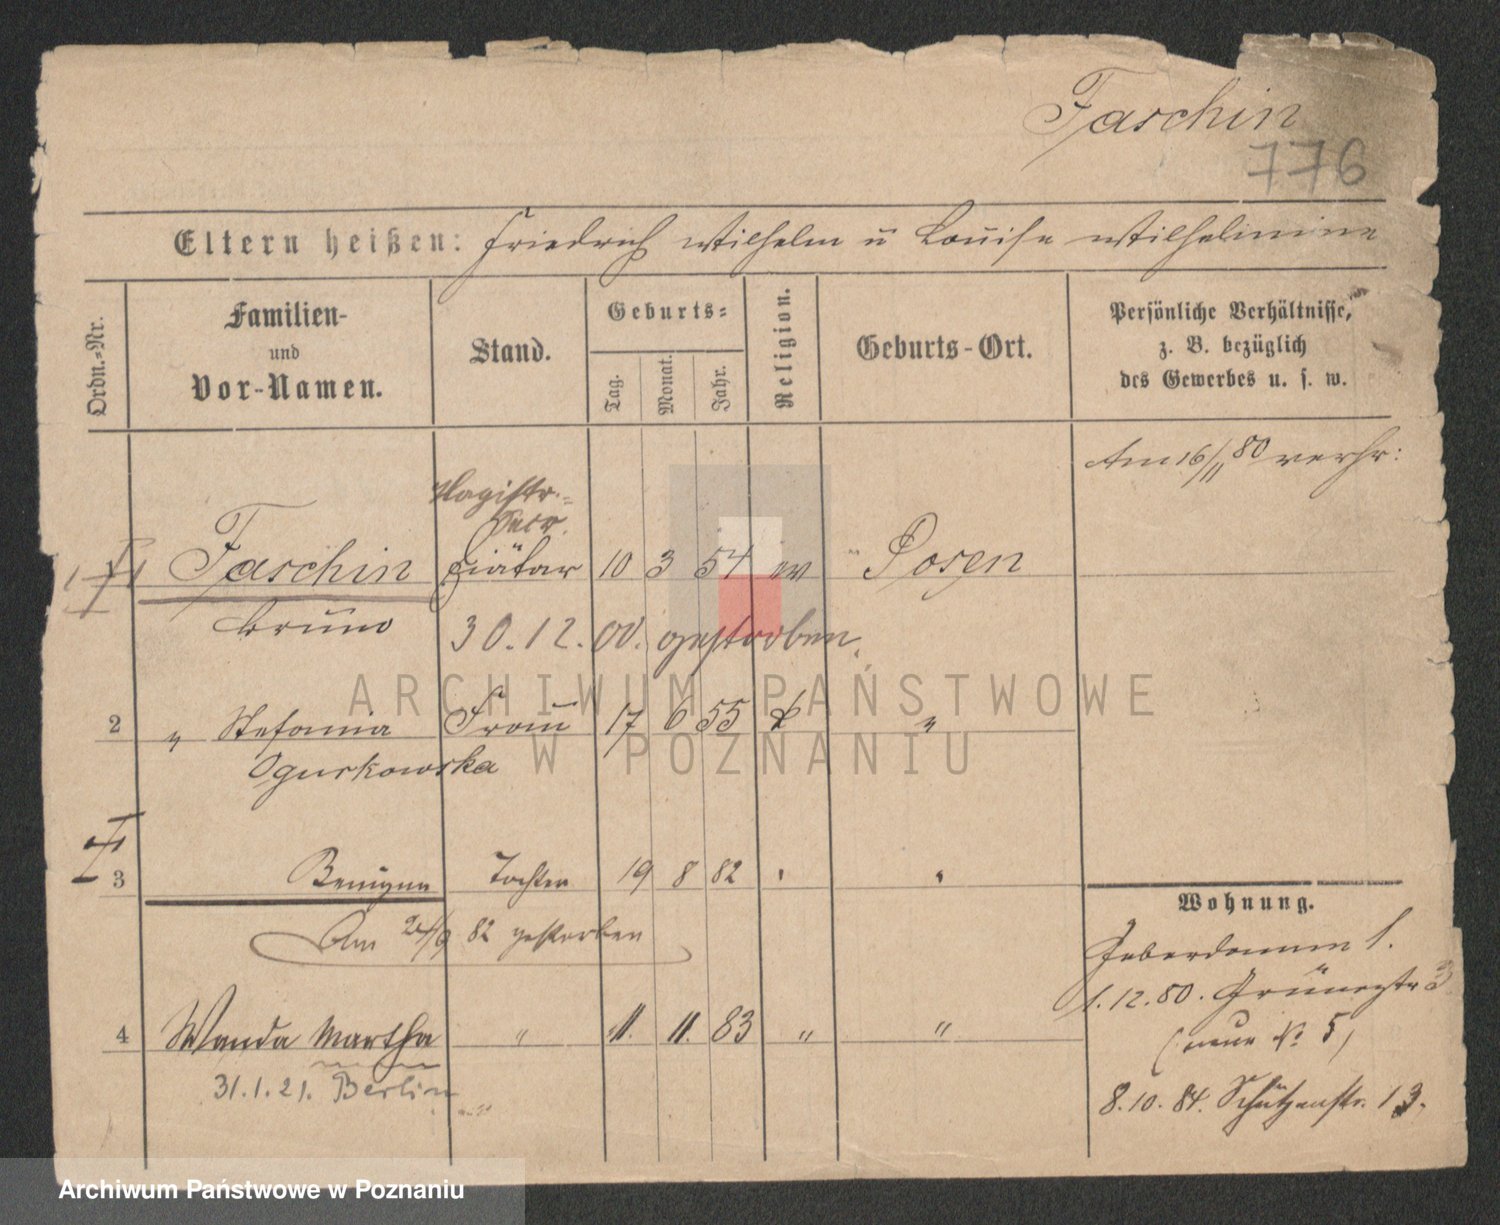 Faschin
776
Eltern heißen: Friedrich Wilhelm u Louise Wilhelmine
Ordn.-Nr.
Familien- und Vor-Namen.
Stand.
Geburts-
Tag.
Monat.
Jahr.
Religion.
Geburts-Ort.
Persönliche Verhältnisse,
z. B. bezüglich
des Gewerbes u. s. w.
Am 16/11 80 verhr:
Magistr.-
Secr.
1 Faschin Diätar 10 3 54 ev Posen
Bruno
30.12.00. gestorben.
2 " Stefania Frau 17 6 55 k "
Oguskowska
3 Benigna Tochter 19 8 82 " "
Am 24/9 82 gestorben
4 Wanda Martha " 11. 11. 83 " "
31.1.21. Berlin
Wohnung.
1.
1.12.80. 3
(neue No 5)
8.10.84. Schützenstr. 13.
ARCHIWUM PAŃSTWOWE
W POZNANIU
Archiwum Państwowe w Poznaniu